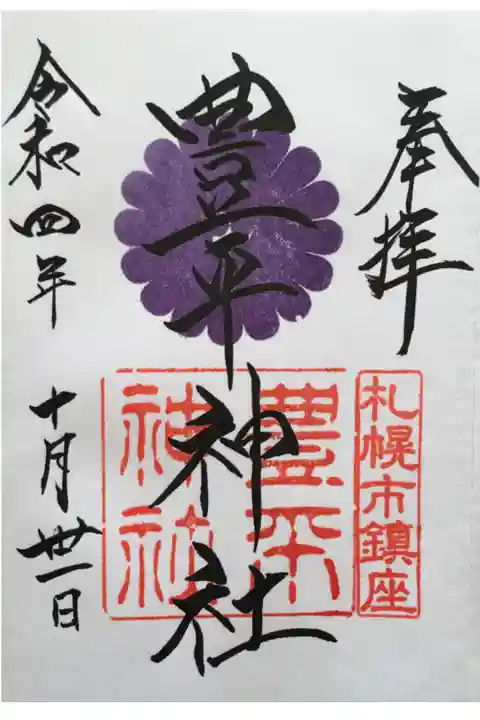 奉拝
札幌市鎮座
豊平神社
豊平
神社
令和四年 十月卅一日